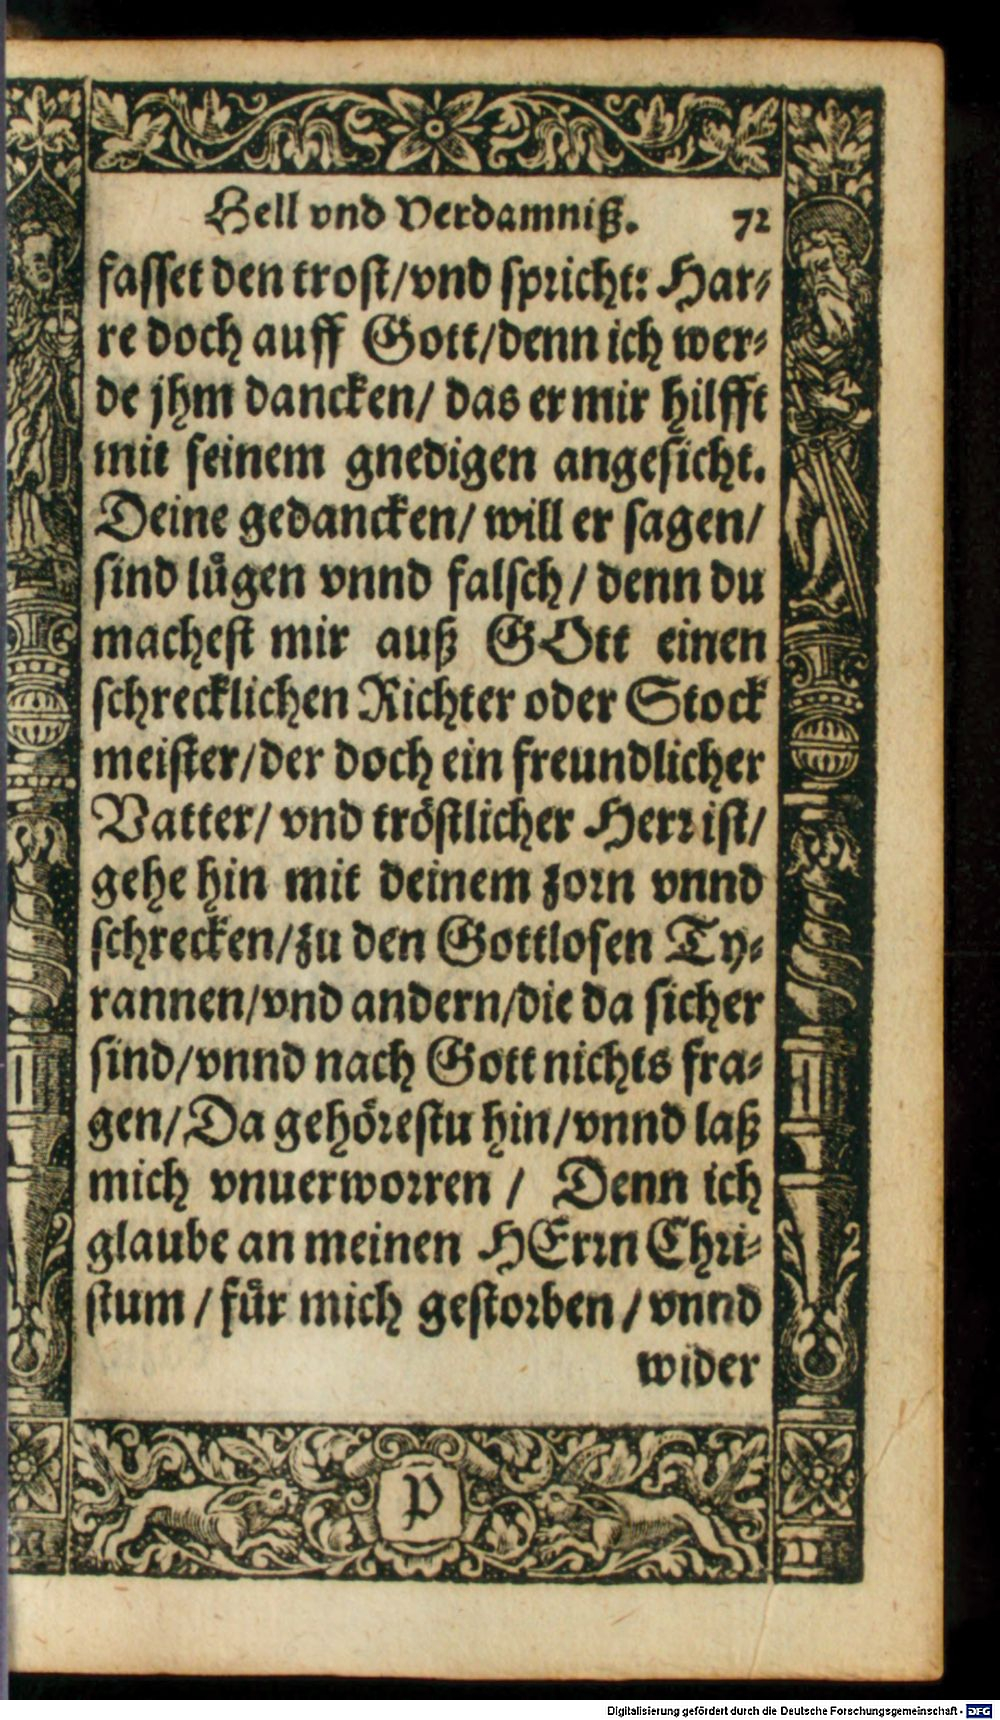 Hell vnd Verdamniß. 72
fasset den trost/vnd spricht: Har⸗
re doch auff Gott/denn ich wer⸗
de jhm dancken/ das er mir hilfft
mit seinem gnedigen angesicht.
Deine gedancken/ will er sagen/
sind luͤgen vnnd falsch/ denn du
machest mir auß GOtt einen
schrecklichen Richter oder Stock
meister/der doch ein freundlicher
Vatter/ vnd tröstlicher Herr ist/
gehe hin mit deinem zorn vnnd
schrecken/zu den Gottlosen Ty⸗
rannen/vnd andern/die da sicher
sind/vnnd nach Gott nichts fra⸗
gen/Da gehoͤrestu hin/vnnd laß
mich vnuerworren / Denn ich
glaube an meinen HErrn Chri⸗
stum / fuͤr mich gestorben / vnnd
wider
P
Digitalisierung gefördert durch die Deutsche Forschungsgemeinschaft - DFG